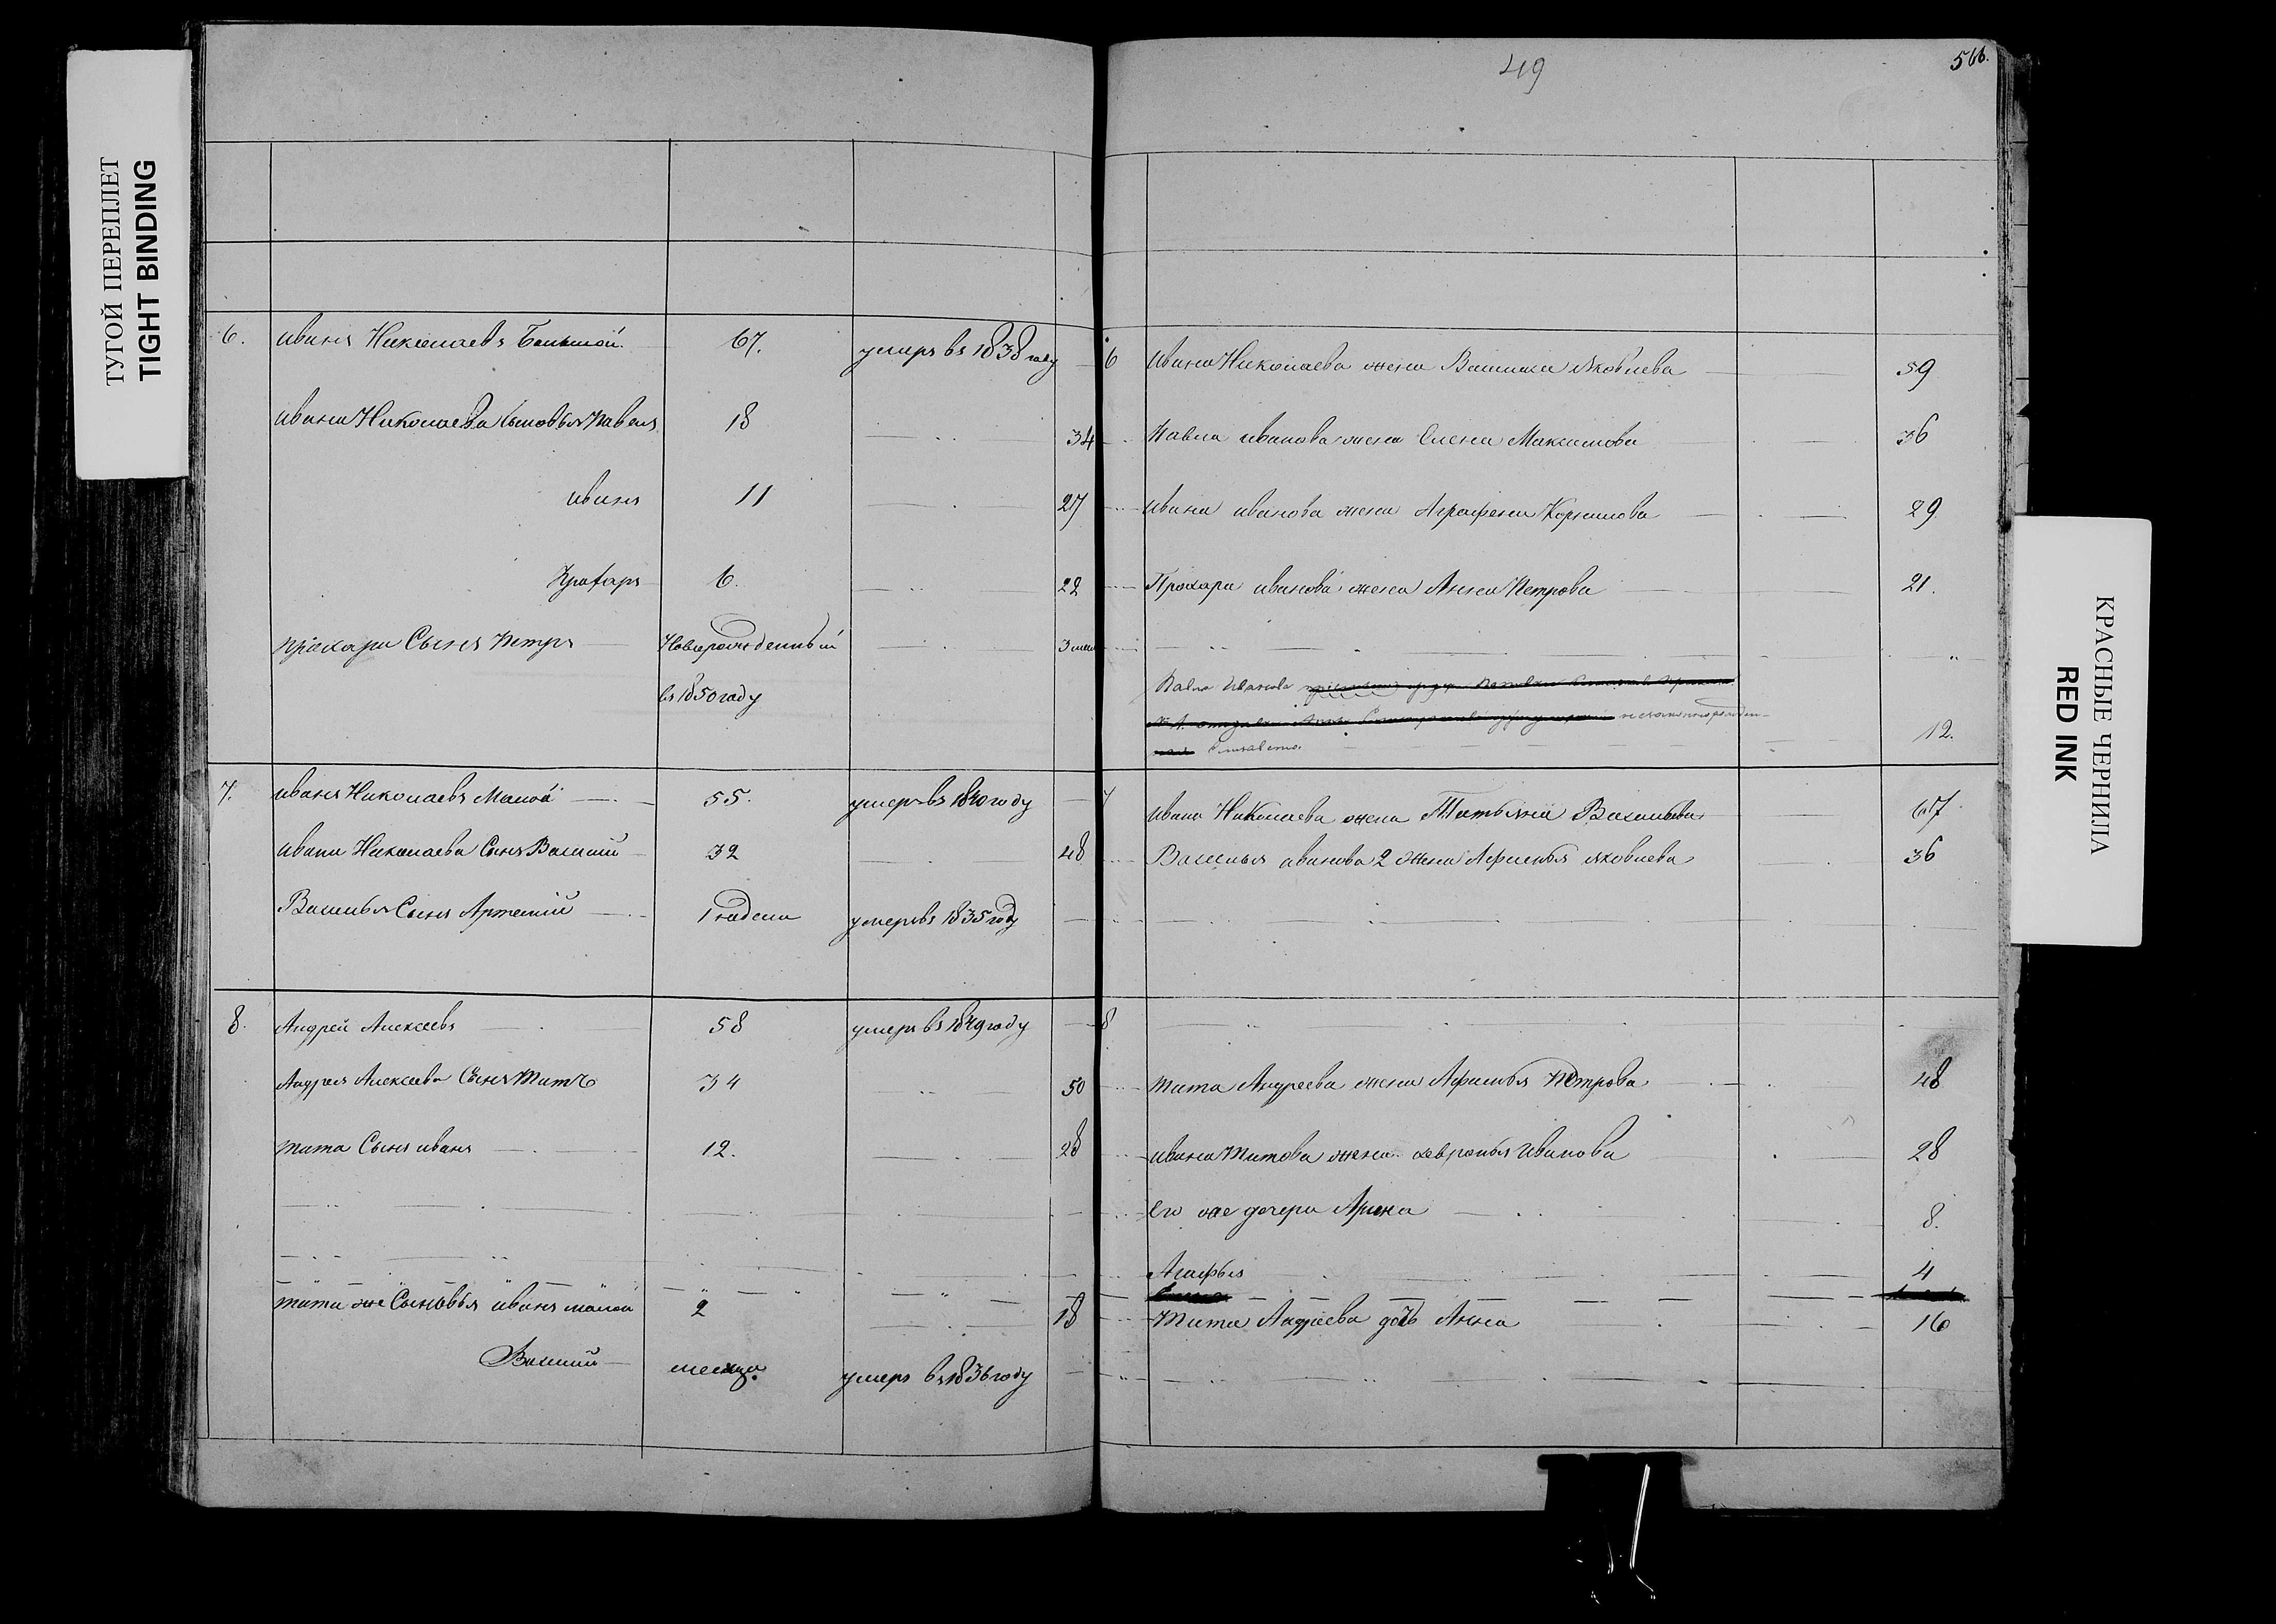 ТУГОЙ ПЕРЕПЛЕТ
TIGHT BINDING
6. иванъ Николаевъ Большой. 67. умеръ въ 1838 году
ивана Николаева сыновья Павелъ 18 34
иванъ 11 27
Прохаръ 6. 22
прохара Сынъ Петръ Новорожденный 3 мес
въ 1850 году
7. иванъ Николаевъ Малой 55. умеръ въ 1840 году
ивана Николаева Сынъ Василий 32 48
Василья Сынъ Артемий 1 недели умеръ въ 1835 году
8. Андрей Алексеевъ 58 умеръ въ 1849 году
Андрея Алексеева Сынъ Титъ 34 50
тита Сынъ иванъ 12. 28
тита же Сыновья иванъ малой 2 18
Василий месяца. умеръ въ 1836 году
49
566.
6 ивана Николаева жена Яковлева 59
Павла иванова жена Елена Максимова 36
ивана иванова жена Аграфена Корнилова 29
Прохара иванова жена Анна Петрова 21.
Павла Иванова
Елизавета 12.
7 ивана Николаева жена Татьяна Васильева 67
Василья иванова 2 жена Афимья яковлева 36
8
тита Андреева жена Афимья Петрова 48
ивана Титова жена хавронья иванова 28
его же дочери Арина 8.
Агафья 4
Тита Андреева дочь Анна 16
КРАСНЫЕ ЧЕРНИЛА
RED INK